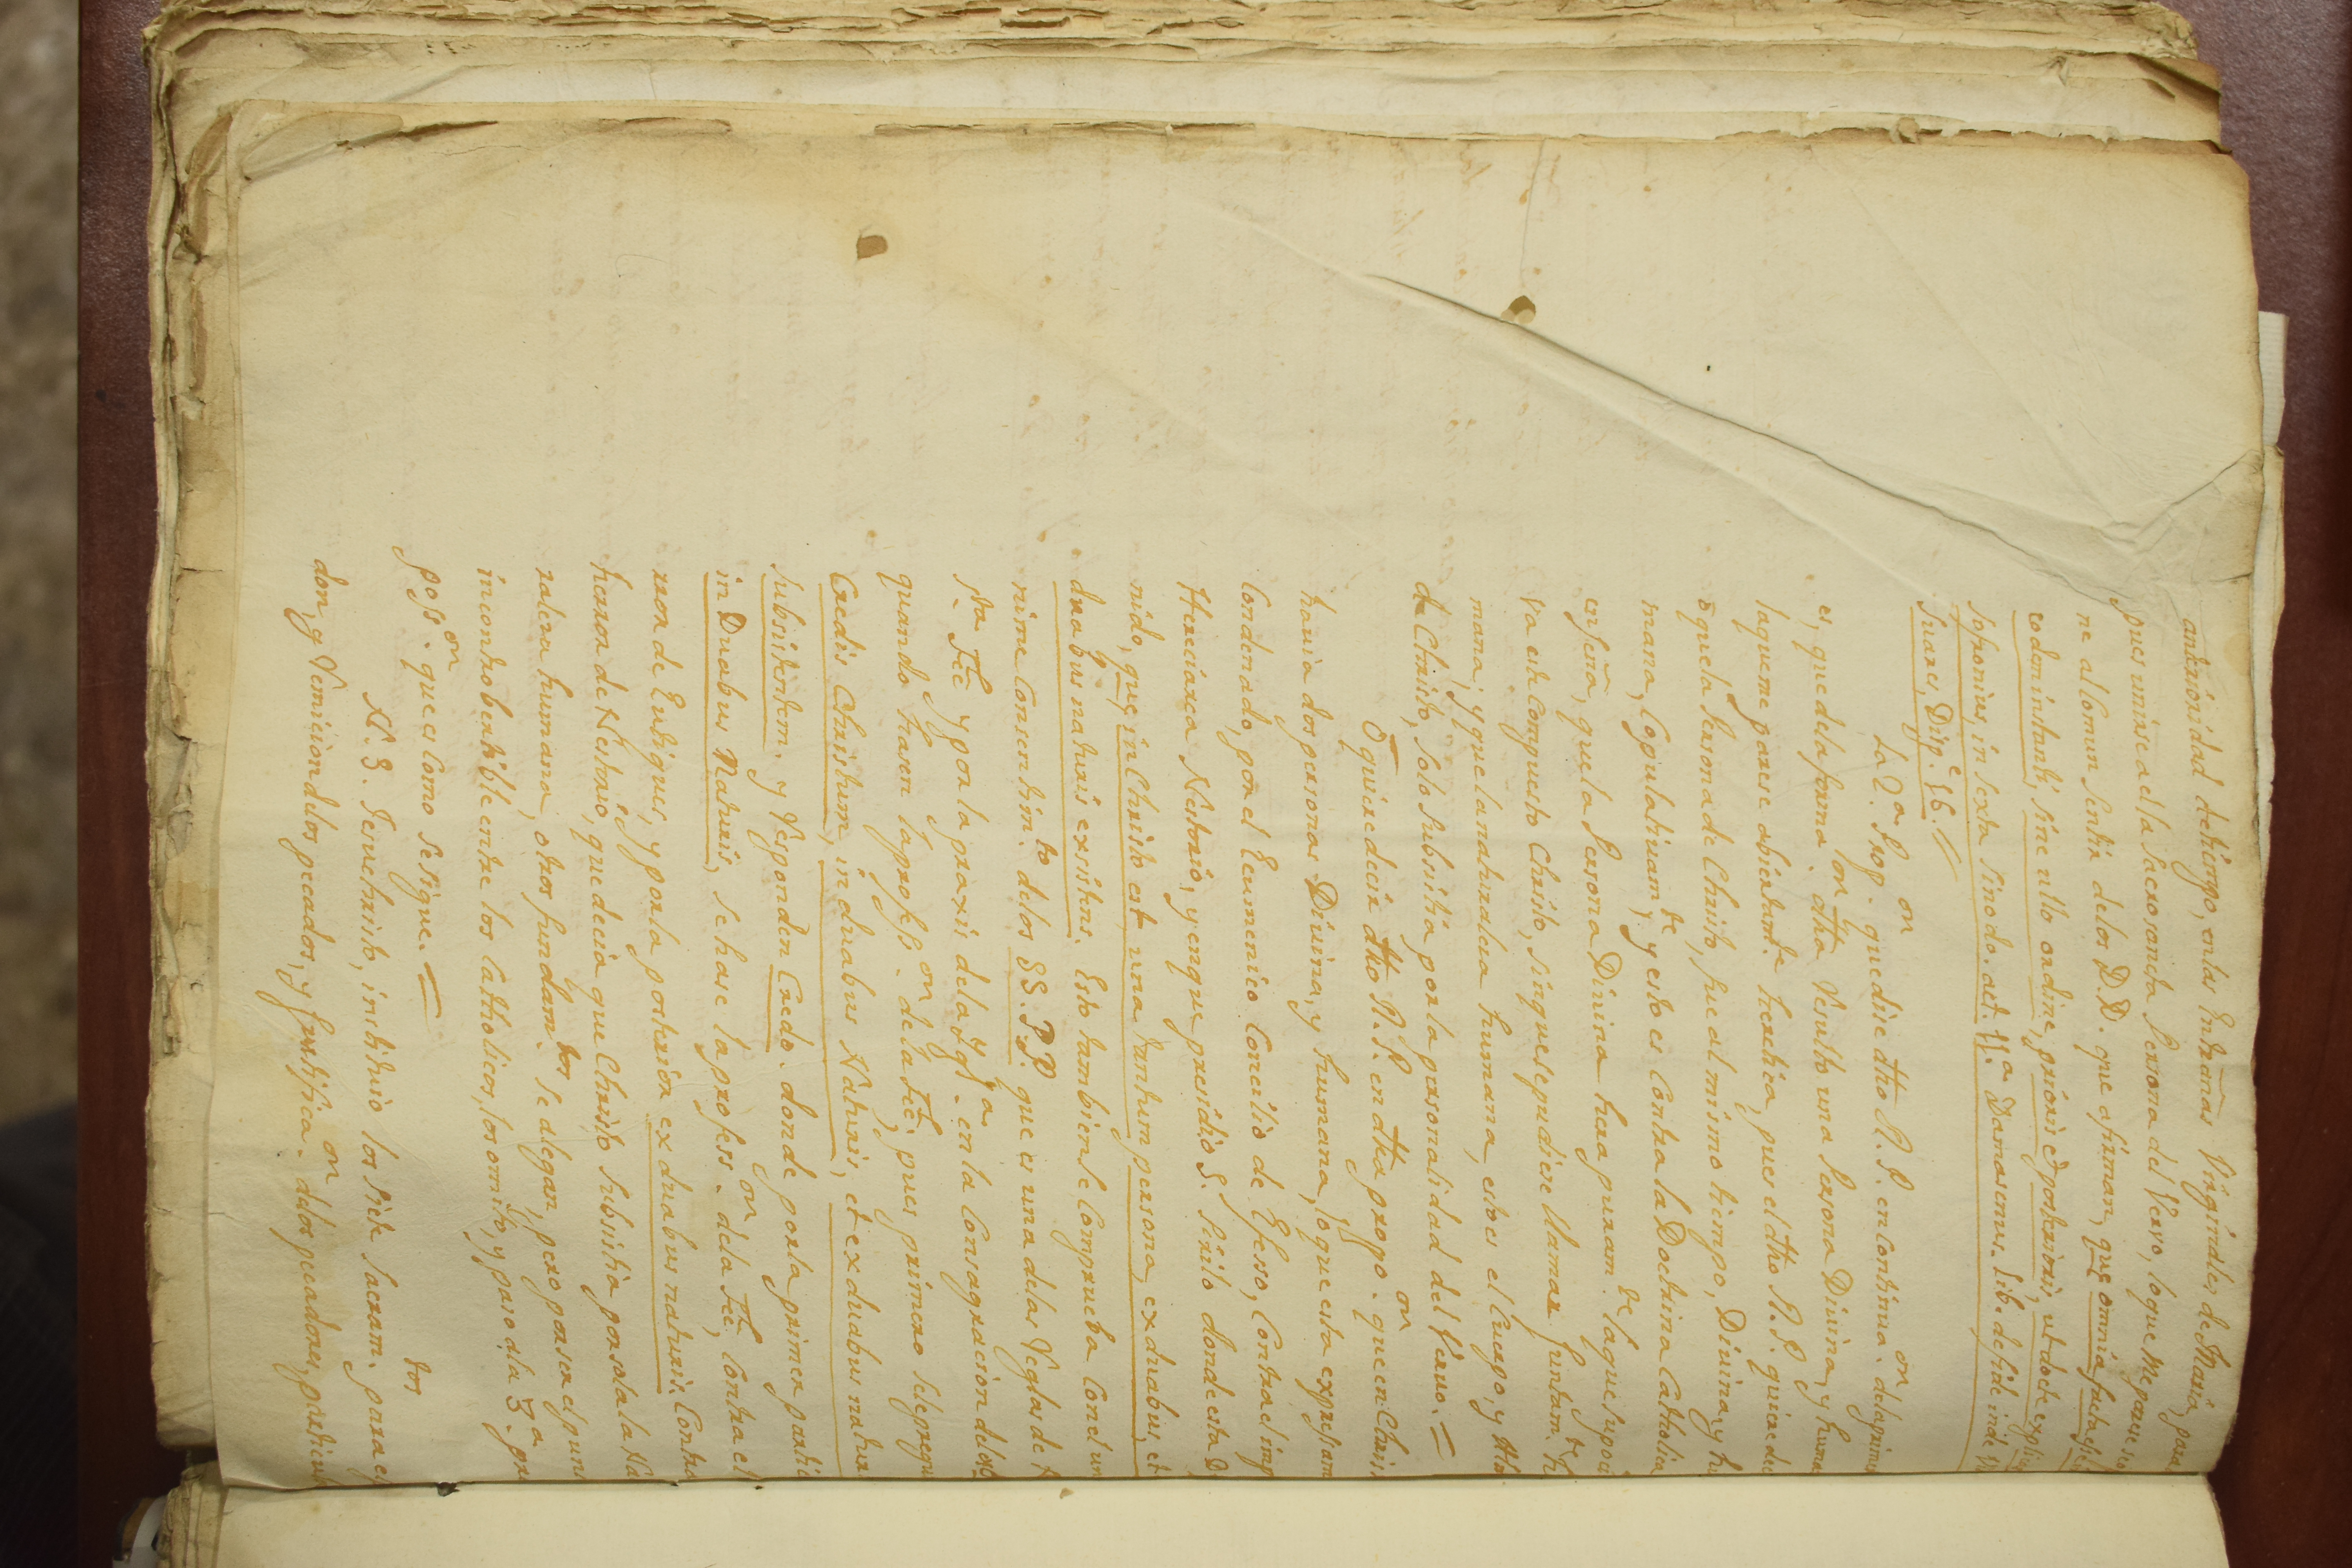 anterioridad detiempo, enlas Entrañas Virginales de Maria, para
pues unirse a ella la sacrosancta Persona del Vervo, loque me parese
ne al Comun sentir delos D.D. que afirman, que omnia facta
eodem instanti, sine ullo ordine, prioris et posterioris, ut docte explic
sofronius, in sexta sinodo. act. 11.ª Damascenus. lib. de fide
suares, Disp.e 16. //
La 2.ª Prop.on que dise dho R. P. en continua.on dela prim
es, que dela forma.con dha resulto una Persona Divina, y huma
laqueme parese abiertam.te heretica, pues el dho R. P. quiere de
ɔ̄ quela Persona de Christo, fue al mismo tiempo, Divina, y hu
mana, Copulativam.te y esto es Contra la Doctrina Catholica
enseña, quela Persona Divina hera puram.te la que supoci
via este Compuesto Christo, sinque se pudiese llamar juntam.te h
mana; y que la naturalesa humana, esto es el Cuerpo, y Al
de Christo, solo subsistia por la personalidad del Vervo. =
O quiere decir dho R. P. en dha propo.on que en Chris
havia dos personas Divina, y humana, lo que esta expresam
Condenado, por el Ecumenico Concilio de Efesso, Contra el imp
Heresiarca Nestorio, y en que presidio S. Sirilo donde esta D
nido, que, in Christo est una tantum persona, ex duabus, et
duabus naturis existens. Esto tambien se Comprueba Con el un
nime Consentim.to delos SS. PP. que es una delas Reglas de N
sta Fee y por la praxis dela Ygl.ª en la Consagracion delos
quando hasen la profess.on dela Fee, pues primero se le pregu
Credis Christum, in duabus Naturis, et ex duabus natur
subsistentem. y Responden Credo. donde por la primer parti
in Duabus Naturis, se hase la profess.on dela Fee, Contra el
rror de Eutiques, y por la posterior ex duabus naturis. Contra
herror de Nestorio, que decia que Christo subsistia por sola la Na
ralesa humana, otros fundam.tos se alegan, pero por ser el pun
incontrobertible entre los Catholicos, los omito, y paso ala 3.ª pr
poss.on que es Como se sigue. =
N. S. Jesuchristo, instituio los siete Sacram.tos para e
don, y Remicion delos pecados, y Justifica.on delos pecadores, particul